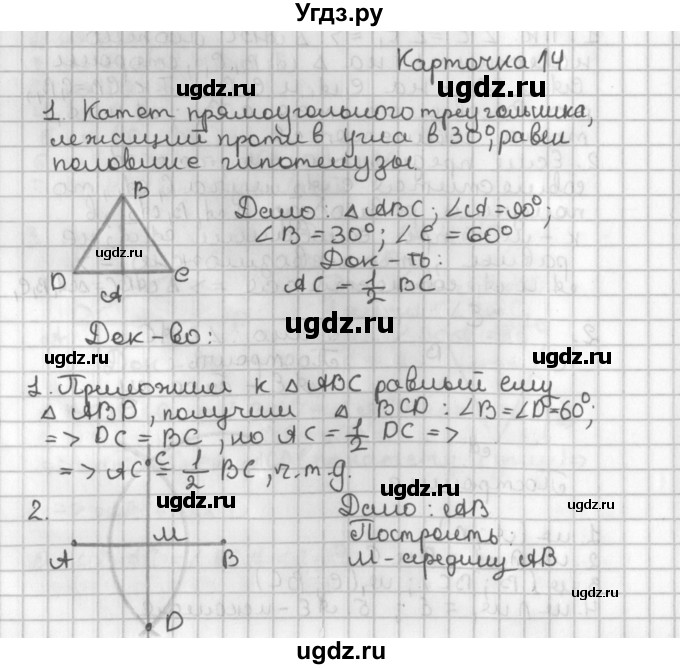 Угдз.ру
Карточка 14
ugdz.ru ugdz.ru
1. Катет прямоугольного треугольника,
лежащий против угла в 30°, равен
половине гипотенузы.
B
Дано: △ABC; ∠A=90°;
∠B = 30°; ∠C = 60°
ugdz.ru
Док-ть:
D C
A
AC = 1/2 BC
ugdz.ru ugdz.ru
Док-во:
ugdz.ru ugdz.ru
1. Приложим к △ABC равный ему
△ABD, получим △ BCD: ∠B=∠D=60°;
=> DC = BC, но AC = 1/2 DC =>
=> AC = 1/2 BC, ч.т.д.
C
ugdz.ru ugdz.ru
2.
Дано: AB
M
Построить:
A B
M - середину AB
D
ugdz.ru ugdz.ru
ugdz.ru